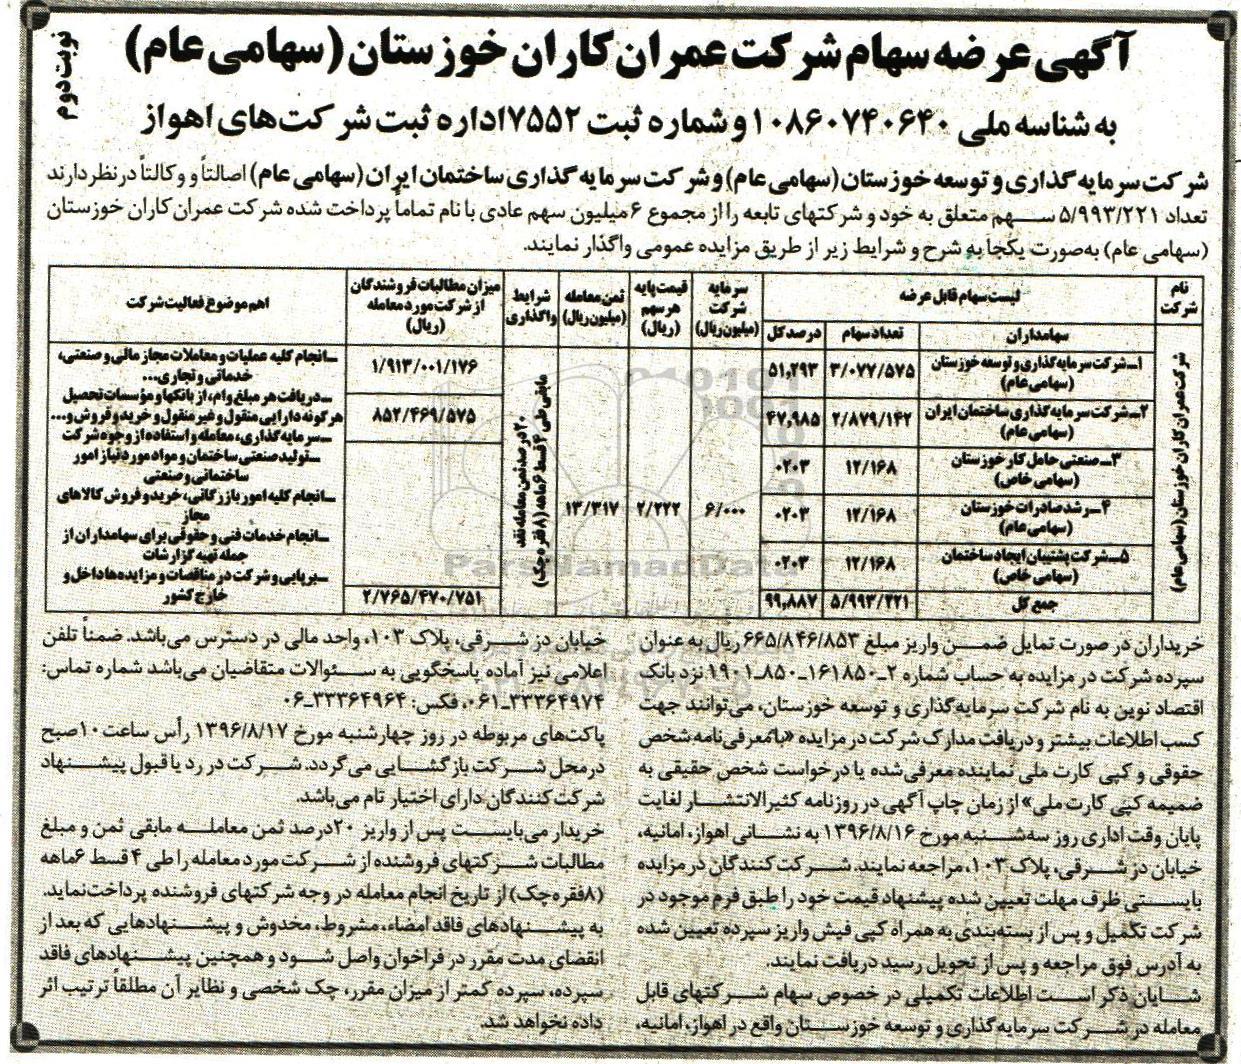 نوبت دوم
آگهی عرضه سهام شرکت عمران کاران خوزستان (سهامی عام)
به شناسه ملی ۱۰۸۶۰۷۴۰۶۴۰ و شماره ثبت ۷۵۵۲ اداره ثبت شرکت‌های اهواز
شرکت سرمایه گذاری و توسعه خوزستان (سهامی عام) و شرکت سرمایه گذاری ساختمان ایران (سهامی عام) اصالتاً و وکالتاً در نظر دارند
تعداد ۵/۹۹۳/۲۲۱ سهم متعلق به خود و شرکتهای تابعه را از مجموع ۶ میلیون سهم عادی با نام تماماً پرداخت شده شرکت عمران کاران خوزستان
(سهامی عام) به‌صورت یکجا به شرح و شرایط زیر از طریق مزایده عمومی واگذار نمایند.
نام شرکت
لیست سهام قابل عرضه
سهامداران
تعداد سهام
درصد کل
سرمایه شرکت (میلیون ریال)
قیمت پایه هر سهم (ریال)
ثمن معامله (میلیون ریال)
شرایط واگذاری
میزان مطالبات فروشندگان از شرکت مورد معامله (ریال)
اهم موضوع فعالیت شرکت
شرکت عمران کاران خوزستان (سهامی عام)
۱ـ شرکت سرمایه گذاری و توسعه خوزستان (سهامی عام)
۳/۰۷۷/۵۷۵
۵۱,۲۹۳
۲ـ شرکت سرمایه گذاری ساختمان ایران (سهامی عام)
۲/۸۷۹/۱۴۲
۴۷,۹۸۵
۳ـ صنعتی حامل کار خوزستان (سهامی خاص)
۱۲/۱۶۸
۰۲۰۳
۴ـ رشد صادرات خوزستان (سهامی عام)
۱۲/۱۶۸
۰۲۰۳
۵ـ شرکت پشتیبان ایجاد ساختمان (سهامی خاص)
۱۲/۱۶۸
۰۲۰۳
جمع کل
۵/۹۹۳/۲۲۱
۹۹,۸۸۷
۶/۰۰۰
۲/۲۲۲
۱۳/۳۱۷
۲۰ درصد ثمن معامله نقد
مابقی طی ۴ قسط ۶ ماهه (۸ فقره چک)
۱/۹۱۳/۰۰۱/۱۷۶
۸۵۲/۴۶۹/۵۷۵
۲/۷۶۵/۴۷۰/۷۵۱
ـ انجام کلیه عملیات و معاملات مجاز مالی و صنعتی،
خدماتی و تجاری...
ـ دریافت هر مبلغ وام، از بانکها و مؤسسات تحصیل
هر گونه دارایی منقول و غیر منقول و خرید و فروش و...
ـ سرمایه گذاری، معامله و استفاده از وجوه شرکت
ـ تولید صنعتی ساختمان و مواد مورد نیاز امور
ساختمانی و صنعتی
ـ انجام کلیه امور بازرگانی، خرید و فروش کالاهای
مجاز
ـ انجام خدمات فنی و حقوقی برای سهامداران از
جمله تهیه گزارشات
ـ برپایی و شرکت در مناقصات و مزایده ها داخل و
خارج کشور
خریداران در صورت تمایل ضمن واریز مبلغ ۶۶۵/۸۴۶/۸۵۳ ریال به عنوان
سپرده شرکت در مزایده به حساب شماره ۲ـ۱۶۱۸۵۰ـ۸۵۰ـ۱۹۰۱ نزد بانک
اقتصاد نوین به نام شرکت سرمایه‌گذاری و توسعه خوزستان، می‌توانند جهت
کسب اطلاعات بیشتر و دریافت مدارک شرکت در مزایده «با معرفی نامه شخص
حقوقی و کپی کارت ملی نماینده معرفی شده یا درخواست شخص حقیقی به
ضمیمه کپی کارت ملی» از زمان چاپ آگهی در روزنامه کثیرالانتشار لغایت
پایان وقت اداری روز سه‌شنبه مورخ ۱۳۹۶/۸/۱۶ به نشانی اهواز، امانیه،
خیابان دز شرقی، پلاک ۱۰۳، مراجعه نمایند. شرکت کنندگان در مزایده
بایستی ظرف مهلت تعیین شده پیشنهاد قیمت خود را طبق فرم موجود در
شرکت تکمیل و پس از بسته‌بندی به همراه کپی فیش واریز سپرده تعیین شده
به آدرس فوق مراجعه و پس از تحویل رسید دریافت نمایند.
شایان ذکر است اطلاعات تکمیلی در خصوص سهام شرکتهای قابل
معامله در شرکت سرمایه گذاری و توسعه خوزستان واقع در اهواز، امانیه،
خیابان دز شرقی، پلاک ۱۰۳، واحد مالی در دسترس می‌باشد. ضمناً تلفن
اعلامی نیز آماده پاسخگویی به سئوالات متقاضیان می‌باشد شماره تماس:
۳۳۳۶۴۹۷۴ـ۰۶۱، فکس: ۳۳۳۶۴۹۶۴ـ۰۶
پاکت‌های مربوطه در روز چهارشنبه مورخ ۱۳۹۶/۸/۱۷ رأس ساعت ۱۰ صبح
در محل شرکت بازگشایی می‌گردد. شرکت در رد یا قبول پیشنهاد
شرکت کنندگان دارای اختیار تام می‌باشد.
خریدار می‌بایست پس از واریز ۲۰ درصد ثمن معامله مابقی ثمن و مبلغ
مطالبات شرکتهای فروشنده از شرکت مورد معامله را طی ۴ قسط ۶ ماهه
(۸ فقره چک) از تاریخ انجام معامله در وجه شرکتهای فروشنده پرداخت نماید.
به پیشنهادهای فاقد امضاء، مشروط، مخدوش و پیشنهادهایی که بعد از
انقضای مدت مقرر در فراخوان واصل شود و همچنین پیشنهادهای فاقد
سپرده، سپرده کمتر از میزان مقرر، چک شخصی و نظایر آن مطلقاً ترتیب اثر
داده نخواهد شد.
ParsNamadData